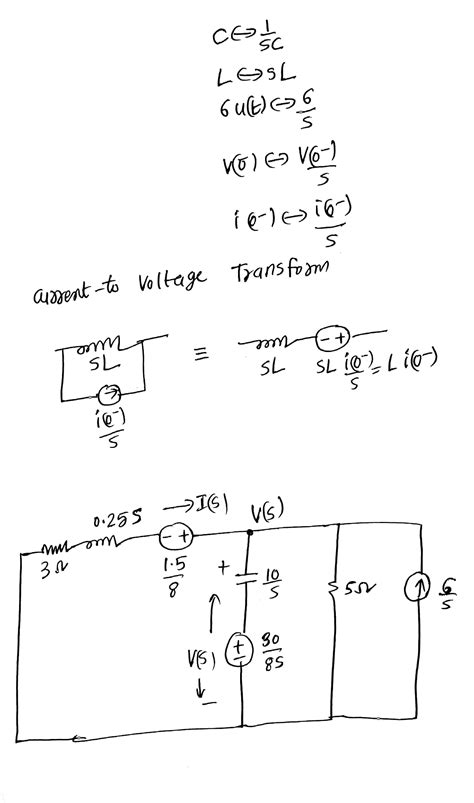 C ↔ 1/SC
L ↔ SL
6u(t) ↔ 6/S
V(0⁻) ↔ V(0⁻)/S
i(0⁻) ↔ i(0⁻)/S
current-to voltage Transform
SL ≡ SL SL i(0⁻)/S = L i(0⁻)
i(0⁻)/S
0.25S → I(S) V(S)
3Ω - + 1.5/8 + 10/S 5Ω 6/S
V(S) + - 30/8S
-